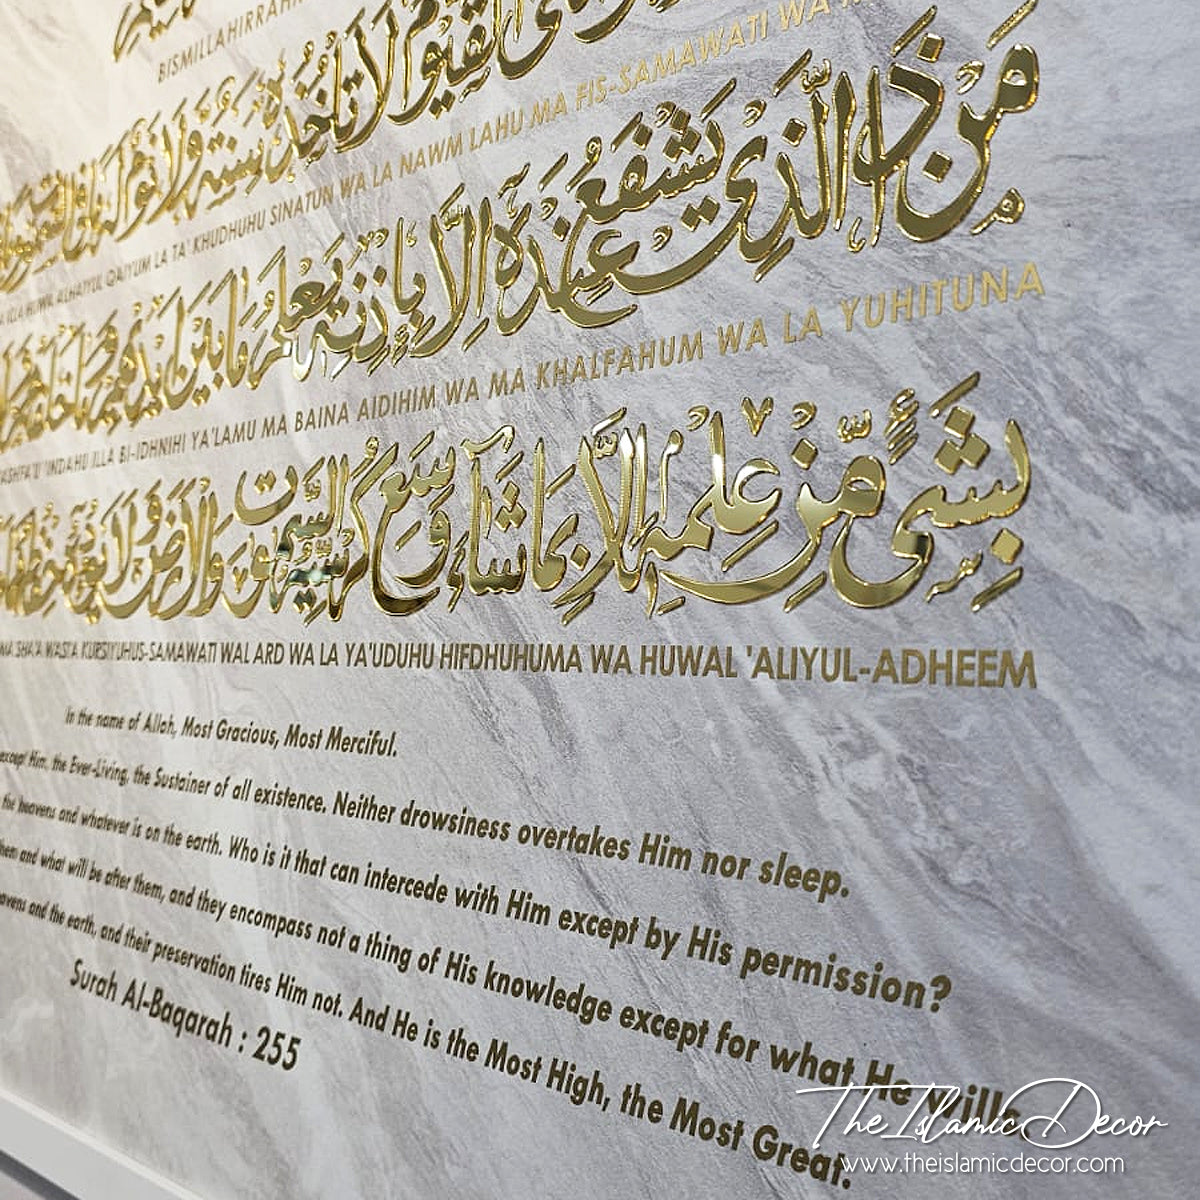 BISMILLAHIRRAH
الْقَيُّومُ لَا تَأْخُذُهُ سِنَةٌ وَلَا نَوْمٌ
ILLA HUWA ALHAIYUL QAIYUM LA TA' KHUDHUHU SINATUN WA LA NAWM LAHU MA FIS-SAMAWATI WA
مَنْ ذَا الَّذِي يَشْفَعُ عِنْدَهُ إِلَّا بِإِذْنِهِ يَعْلَمُ مَا بَيْنَ أَيْدِيهِمْ وَمَا خَلْفَهُمْ
YASHFA'U 'INDAHU ILLA BI-IDHNIHI YA'LAMU MA BAINA AIDIHIM WA MA KHALFAHUM WA LA YUHITUNA
بِشَيْءٍ مِّنْ عِلْمِهِ إِلَّا بِمَا شَآءَ وَسِعَ كُرْسِيُّهُ السَّمٰوٰتِ وَالْأَرْضَ وَلَا يَئُودُهُ حِفْظُهُمَا
MA SHA'A WASI'A KURSIYUHUS-SAMAWATI WAL ARD WA LA YA'UDUHU HIFDHUHUMA WA HUWAL 'ALIYUL-ADHEEM
In the name of Allah, Most Gracious, Most Merciful.
except Him, the Ever-Living, the Sustainer of all existence. Neither drowsiness overtakes Him nor sleep.
the heavens and whatever is on the earth. Who is it that can intercede with Him except by His permission?
them and what will be after them, and they encompass not a thing of His knowledge except for what He wills.
heavens and the earth, and their preservation tires Him not. And He is the Most High, the Most Great.
Surah Al-Baqarah : 255
TheIslamicDecor
www.theislamicdecor.com